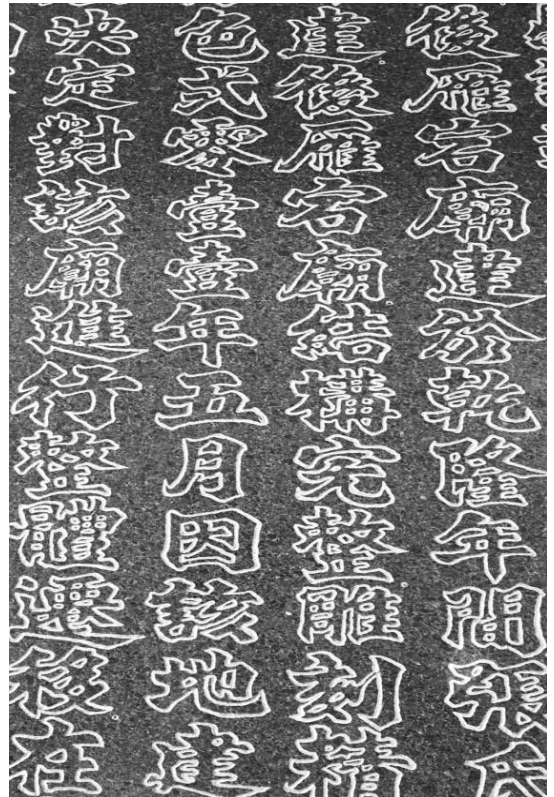 後雁宕廟建於乾隆年間張氏
建。後雁宕廟。結構完整。雕刻精
色弍零壹壹年五月因該地建
決定對該廟進行整體遷移。在